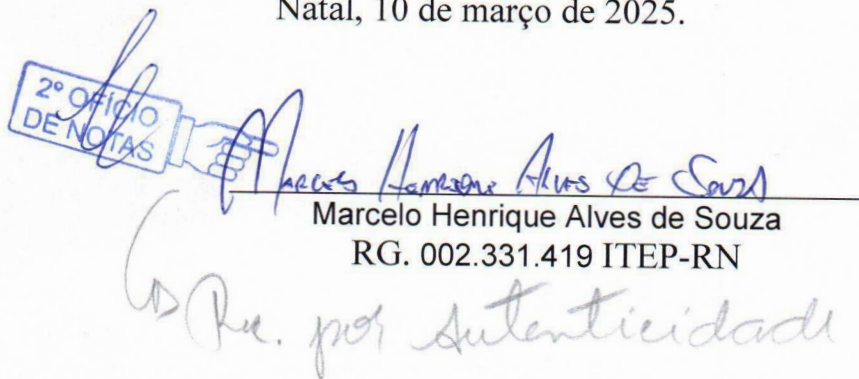 Natal, 10 de março de 2025.
2º OFÍCIO
DE NOTAS
Marcelo Henrique Alves de Souza
Marcelo Henrique Alves de Souza
RG. 002.331.419 ITEP-RN
Rec. por autenticidade